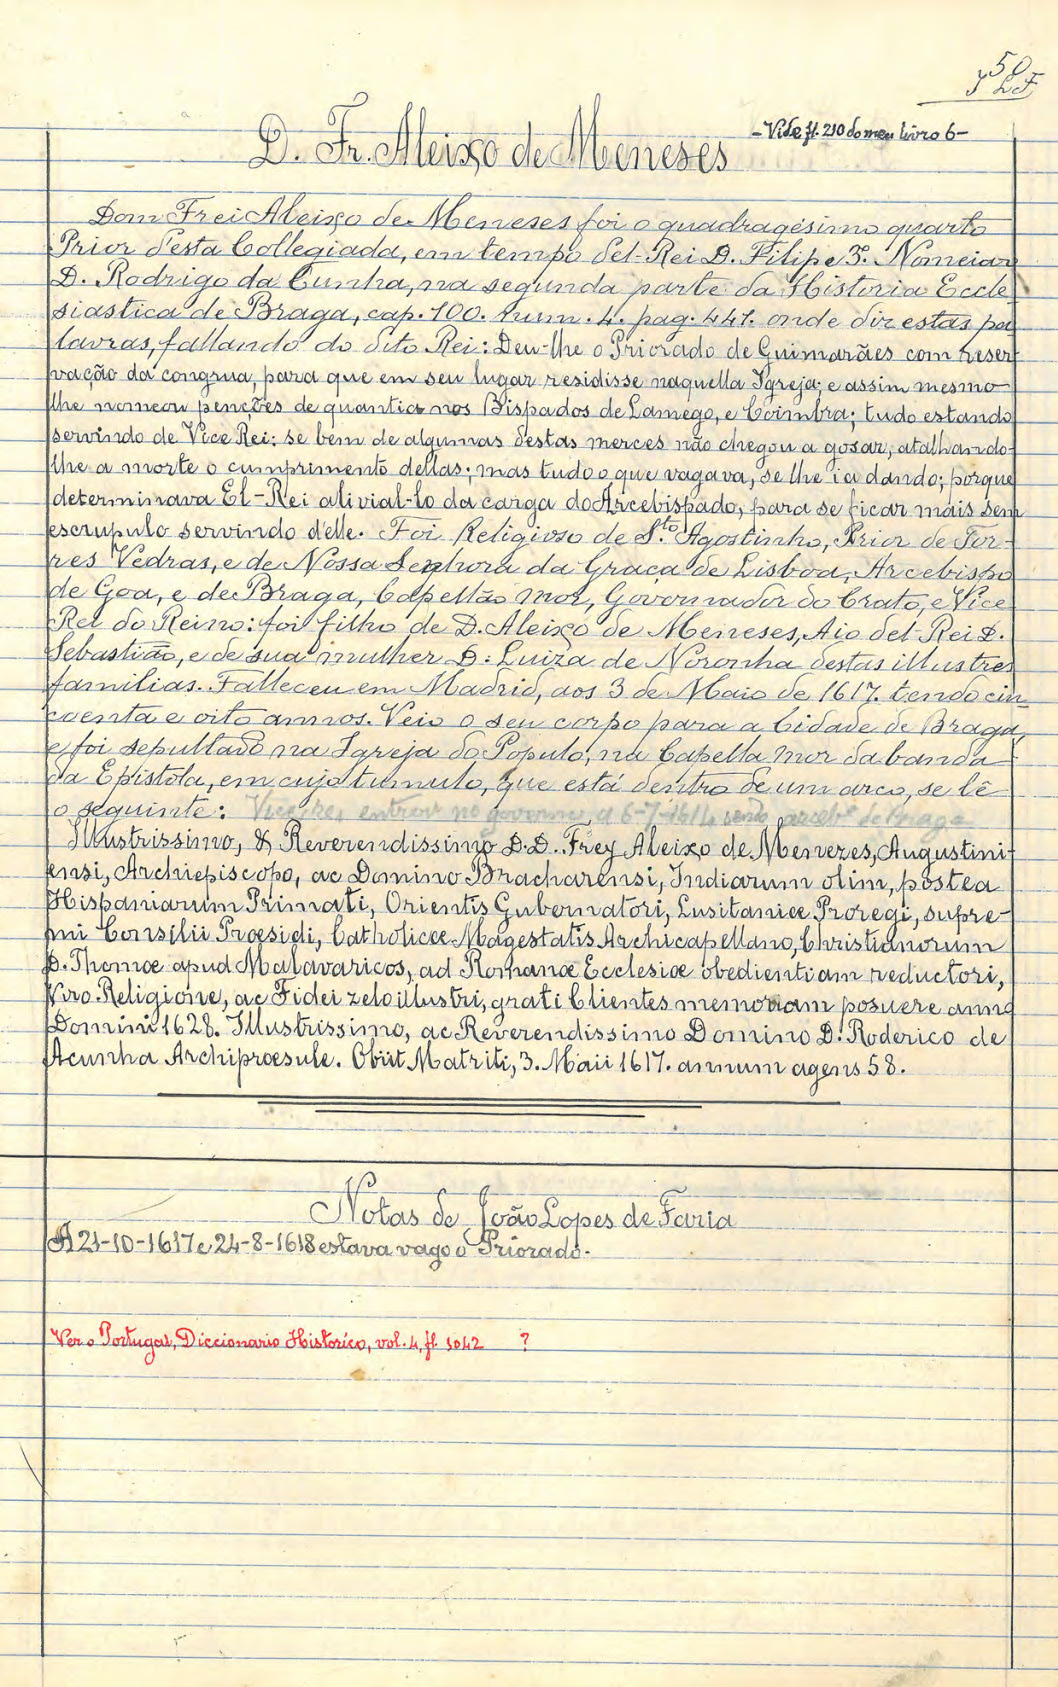 50
J L F
D. Fr. Aleixo de Meneses
- Vide fl. 210 do meu livro 6 -
Dom Frei Aleixo de Meneses foi o quadragésimo quarto
Prior d'esta Collegiada, em tempo del-Rei D. Filipe 3º. Nomeia
D. Rodrigo da Cunha, na segunda parte da Historia Eccle-
siastica de Braga, cap. 100. num. 4. pag. 441. onde diz estas pa
lavras, fallando do dito Rei: Deu-lhe o Priorado de Guimarães com reser
vação da congrua, para que em seu lugar residisse naquella Igreja; e assim mesmo
lhe nomeou penções de quantia nos Bispados de Lamego, e Coimbra; tudo estando
servindo de Vice Rei; se bem de algumas destas merces não chegou a gosar, atalhando-
lhe a morte o cumprimento dellas; mas tudo o que vagava, se lhe ia dando; porque
determinava El-Rei alivial-lo da carga do Arcebispado, para se ficar mais sem
escrupulo servindo d'elle. Foi Religioso de S.to Agostinho, Prior de Tor-
res Vedras, e de Nossa Senhora da Graça de Lisboa, Arcebispo
de Goa, e de Braga, Capellão mor, Governador do Crato, e Vice
Rei do Reino: foi filho de D. Aleixo de Meneses, Aio del Rei D.
Sebastião, e de sua mulher D. Luiza de Noronha destas illustres
familias. Falleceu em Madrid, aos 3 de Maio de 1617. tendo cin
coenta e oito annos. Veio o seu corpo para a Cidade de Braga,
e foi sepultado na Igreja do Populo, na Capella mor da banda
da Epistola, em cujo tumulo, que está dentro de um arco, se lê
o seguinte: Vice-rei, entrou no governo a 6-7-1614 sendo arceb.º de Braga
Illustrissimo, & Reverendissimo D.D. Frey Aleixo de Menezes, Augustini-
ensi, Archiepiscopo, ac Domino Bracharensi, Indiarum olim, postea
Hispaniarum Primati, Orientis Gubernatori, Lusitaniæ Proregi, supre-
mi Consilii Præsidi, Catholicæ Magestatis Archicapellano, Christianorum
D. Thomæ apud Malavaricos, ad Romanæ Ecclesiæ obedientiam reductori,
Viro Religione, ac Fidei zelo illustri, grati Clientes memoriam posuere anno
Domini 1628. Illustrissimo, ac Reverendissimo Domino D. Roderico de
Acunha Archipræsule. Obiit Matriti, 3. Maii 1617. annum agens 58.
Notas de João Lopes de Faria
A 21-10-1617 e 24-8-1618 estava vago o Priorado.
Ver o Portugal, Diccionario Historico, vol. 4, fl. 1042 ?